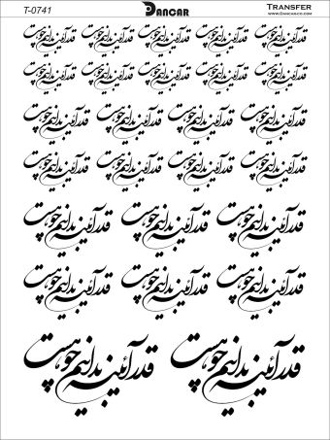 T-0741 DANCAR TRANSFER
قدر آئینه بدانیم چو هست قدر آئینه بدانیم چو هست قدر آئینه بدانیم چو هست قدر آئینه بدانیم چو هست قدر آئینه بدانیم چو هست
قدر آئینه بدانیم چو هست قدر آئینه بدانیم چو هست قدر آئینه بدانیم چو هست قدر آئینه بدانیم چو هست قدر آئینه بدانیم چو هست
قدر آئینه بدانیم چو هست قدر آئینه بدانیم چو هست قدر آئینه بدانیم چو هست قدر آئینه بدانیم چو هست
قدر آئینه بدانیم چو هست قدر آئینه بدانیم چو هست قدر آئینه بدانیم چو هست قدر آئینه بدانیم چو هست
قدر آئینه بدانیم چو هست قدر آئینه بدانیم چو هست قدر آئینه بدانیم چو هست
قدر آئینه بدانیم چو هست قدر آئینه بدانیم چو هست قدر آئینه بدانیم چو هست
قدر آئینه بدانیم چو هست قدر آئینه بدانیم چو هست